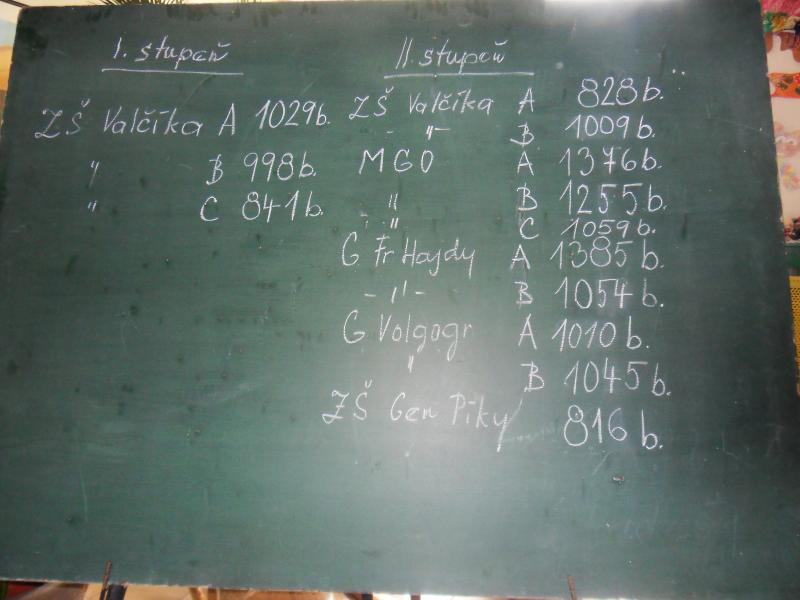 I. stupeň
ZŠ Valčíka A 1029b.
" B 998b.
" C 841b.
II. stupeň
ZŠ Valčíka A 828b.
-"- B 1009b.
MGO A 1376b.
" B 1255b.
" C 1059b.
G Fr Hajdy A 1385b.
-"- B 1054b.
G Volgogr A 1010b.
" B 1045b.
ZŠ Gen Píky 816b.